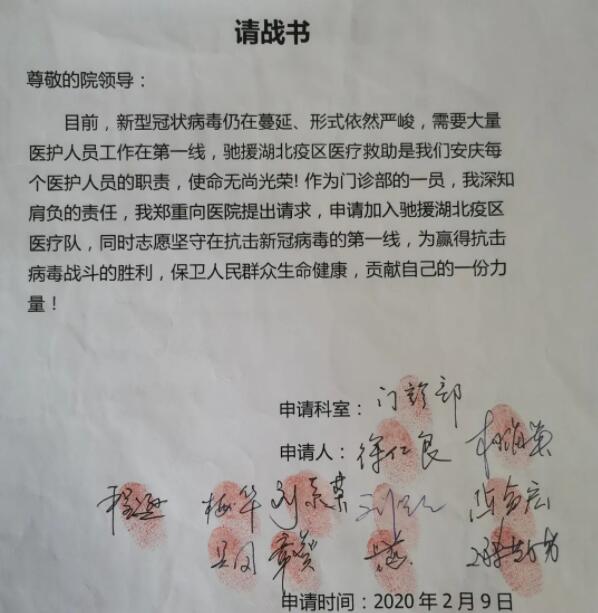 请战书
尊敬的院领导：
目前，新型冠状病毒仍在蔓延、形式依然严峻，需要大量
医护人员工作在第一线，驰援湖北疫区医疗救助是我们安庆每
个医护人员的职责，使命无尚光荣！作为门诊部的一员，我深知
肩负的责任，我郑重向医院提出请求，申请加入驰援湖北疫区
医疗队，同时志愿坚守在抗击新冠病毒的第一线，为赢得抗击
病毒战斗的胜利，保卫人民群众生命健康，贡献自己的一份力
量！
申请科室：门诊部
申请人：徐仁良
申请时间：2020 年 2 月 9 日